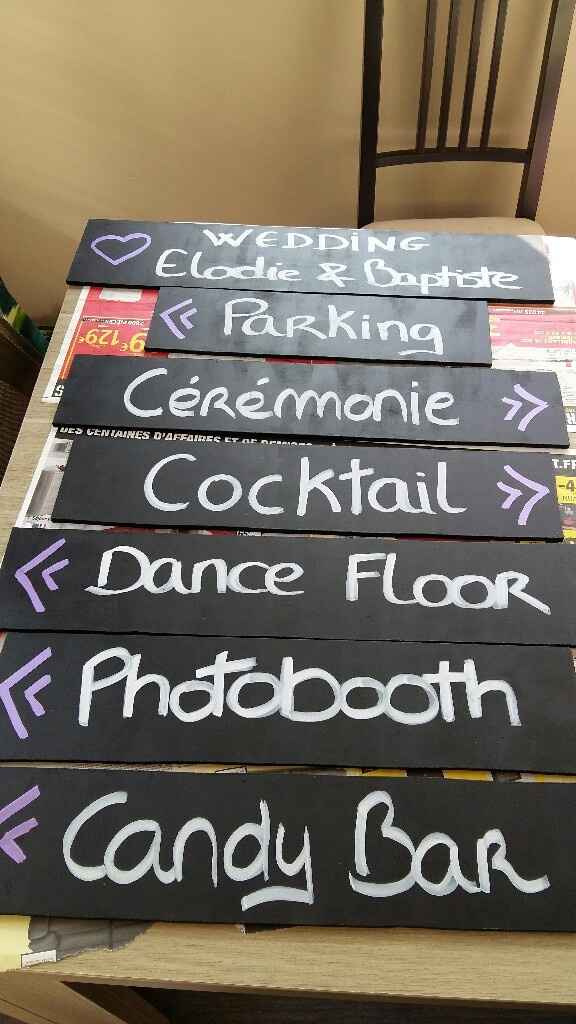 WEDDING
Elodie & Baptiste
Parking
Cérémonie
Cocktail
Dance Floor
Photobooth
Candy Bar
129€
DES CENTAINES D'AFFAIRES ET DE